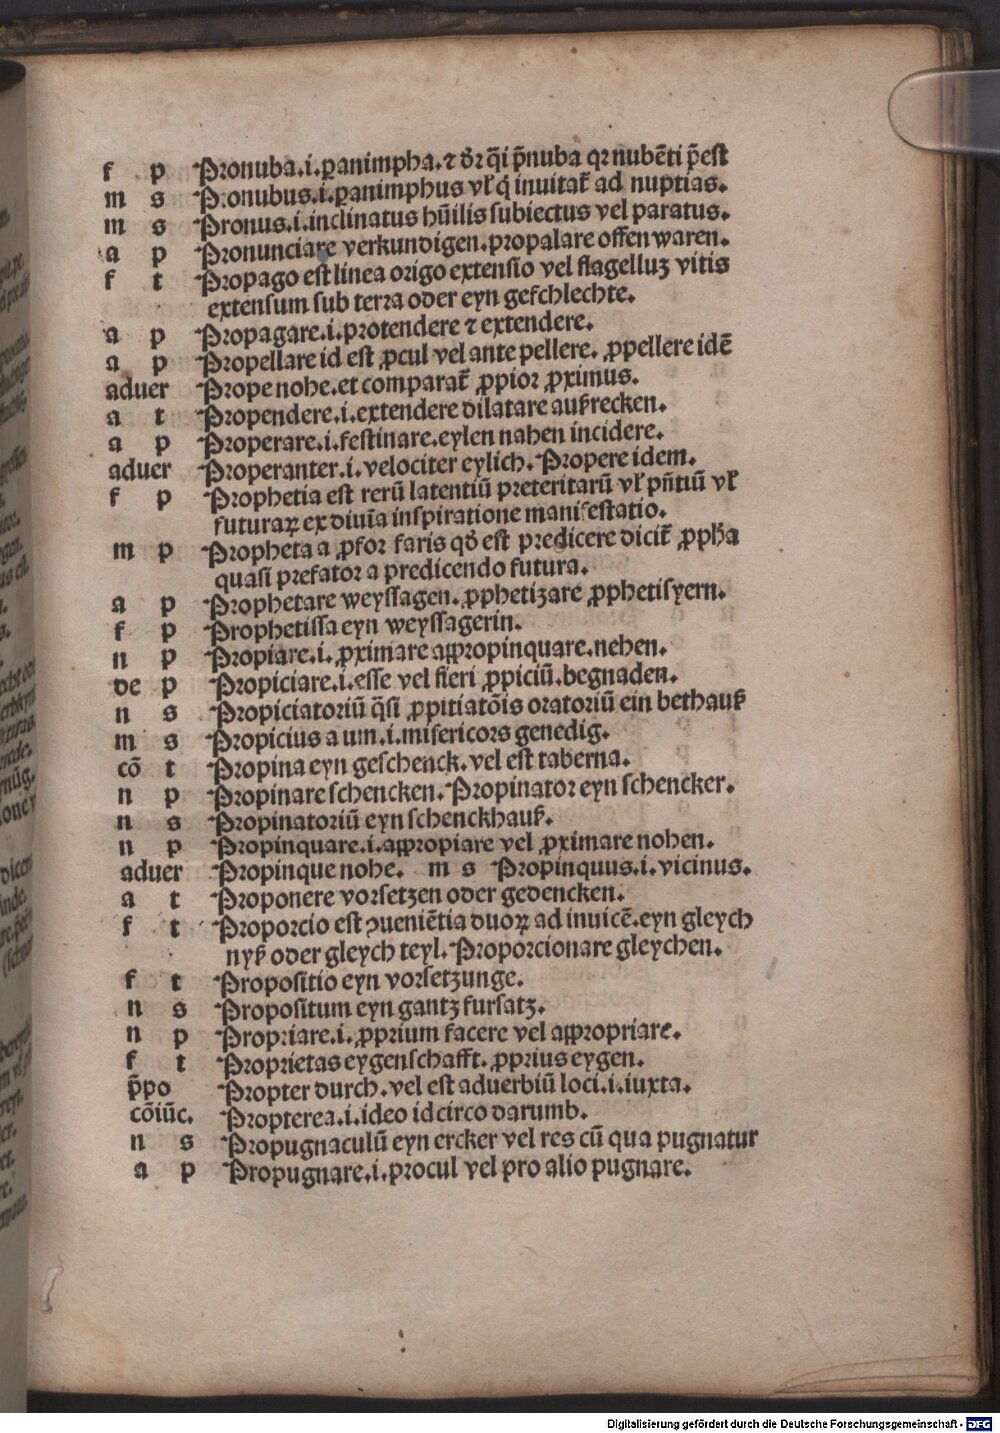 f p Pronuba.i.ꝑanimpha.⁊ dr̄ q̄i p̄nuba qꝛ nubēti p̄est
m s Pronubus.i.ꝑanimphus vl̄ q̇ inuitat̄ ad nuptias.
m s Pronus.i.inclinatus hūilis subiectus vel paratus.
a p Pronunciare verkundigen.propalare offenwaren.
f t Propago est linea origo extensio vel flagelluʒ vitis
extensum sub terra oder eyn geschlechte.
a p Propagare.i.protendere ⁊ extendere.
a p Propellare id est ꝓcul vel ante pellere. ꝓpellere idē
aduer Prope nohe.et comparat̄ ꝓpior ꝓximus.
a t Propendere.i.extendere dilatare außrecken.
a p Properare.i.festinare.eylen nahen incidere.
aduer Properanter.i.velociter eylich.Propere idem.
f p Prophetia est rerū latentiū preteritarū vl̄ pn̄tiū vl̄
futuraꝝ ex diuīa inspiratione manifestatio.
m p Propheta a ꝓfor faris qd̄ est predicere dicit̄ ꝓpħa
quasi prefator a predicendo futura.
a p Prophetare weyssagen.ꝓphetizare ꝓphetisyern.
f p Prophetissa eyn weyssagerin.
n p Propiare.i.ꝓximare appropinquare.nehen.
de p Propiciare.i.esse vel fieri ꝓpiciū.begnaden.
n s Propiciatoriū q̄si ꝓpitiatōis oratoriū ein bethauß
m s Propicius a um.i.misericors genedig.
cō t Propina eyn geschenck.vel est taberna.
n p Propinare schencken.Propinator eyn schencker.
n s Propinatoriū eyn schenckhauß.
n p Propinquare.i.appropiare vel ꝓximare nohen.
aduer Propinque nohe. m s Propinquus.i.vicinus.
a t Proponere vorsetzen oder gedencken.
f t Proporcio est ꝯueniētia duoꝝ ad inuicē.eyn gleych
nyß oder gleych teyl.Proporcionare gleychen.
f t Propositio eyn vorsetzunge.
n s Propositum eyn gantz fursatz.
n p Propriare.i.ꝓprium facere vel appropriare.
f t Proprietas eygenschafft.ꝓprius eygen.
p̄po Propter durch.vel est aduerbiū loci.i.iuxta.
cōiūc. Propterea.i.ideo idcirco darumb.
n s Propugnaculū eyn ercker vel res cū qua pugnatur
a p Propugnare.i.procul vel pro alio pugnare.
Digitalisierung gefördert durch die Deutsche Forschungsgemeinschaft - DFG